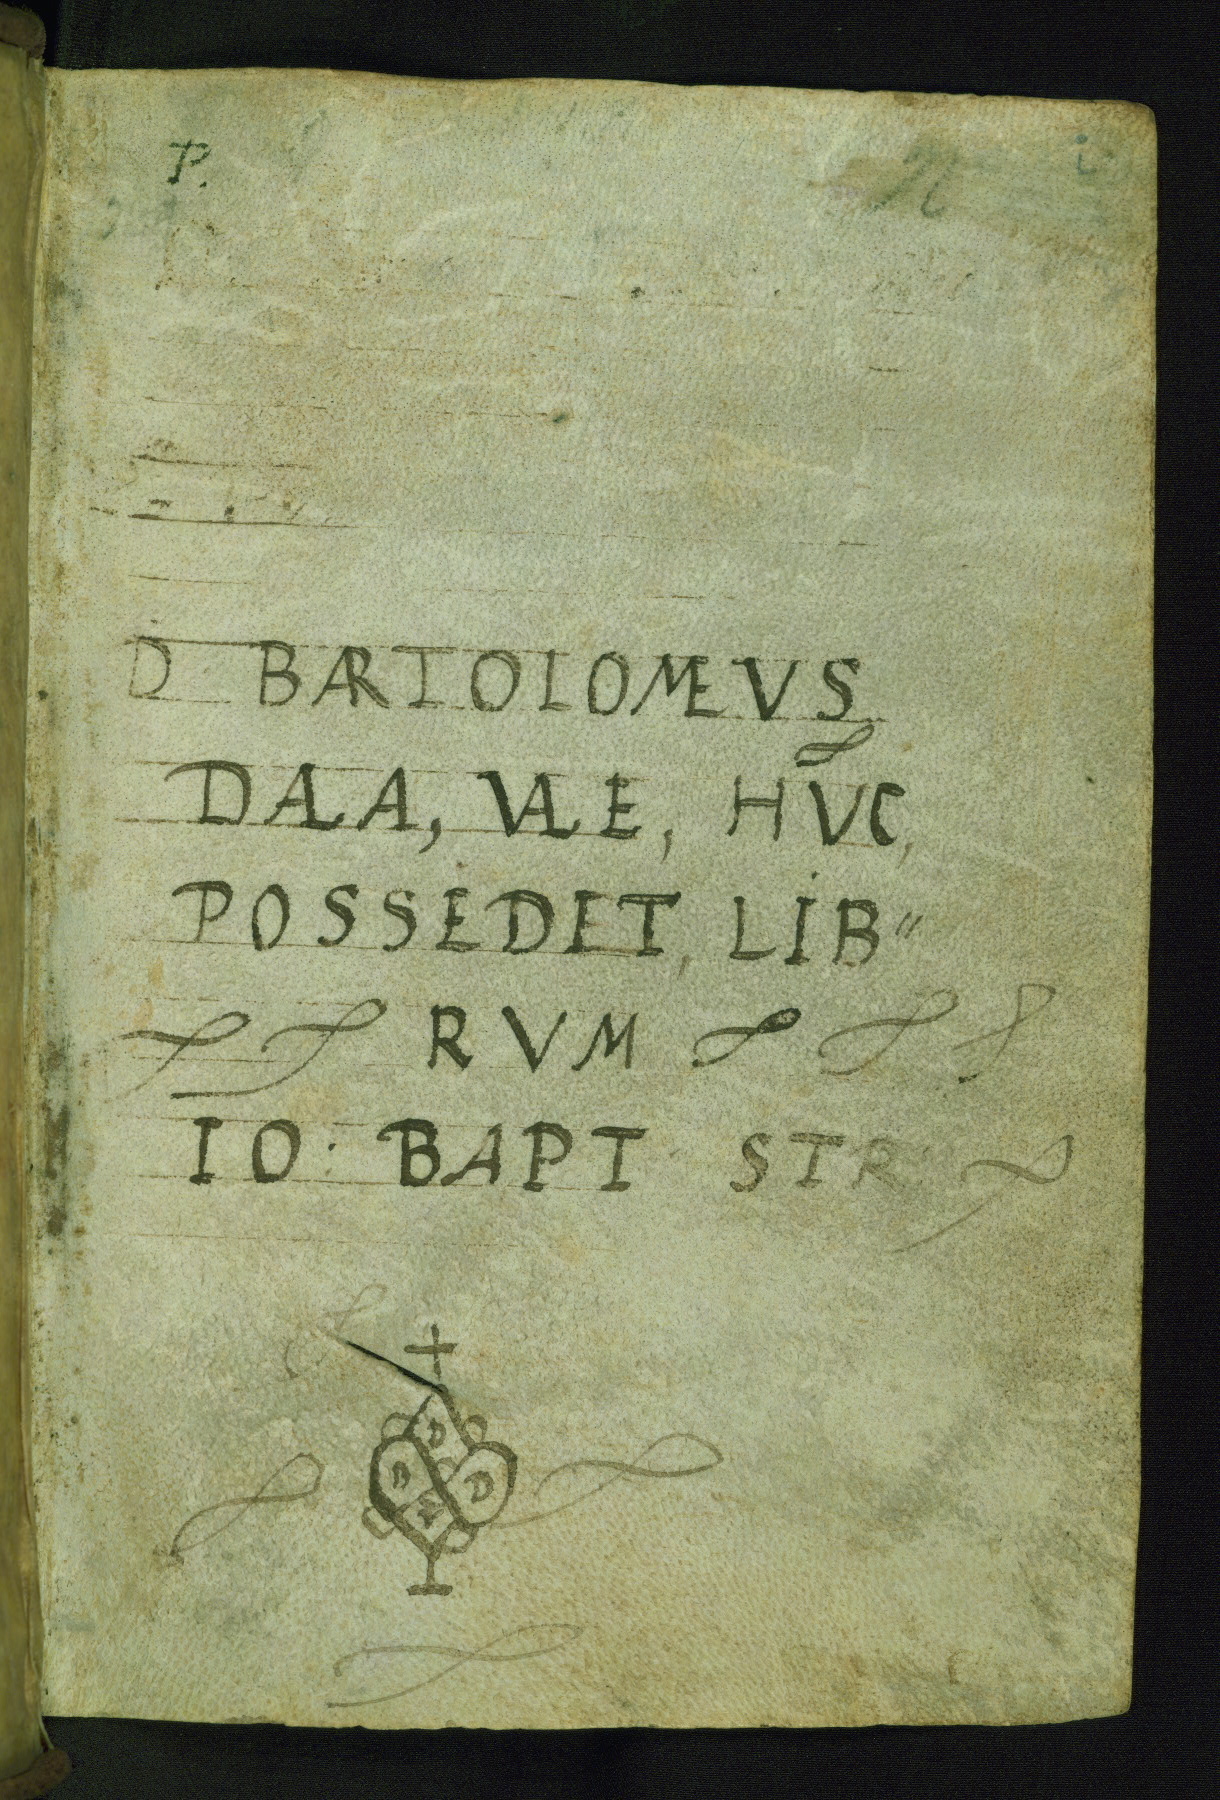 P.
D BARTOLOMEVS
DALA, VALE, HṼC,
POSSEDET, LIB"
RVM
IO: BAPT STR